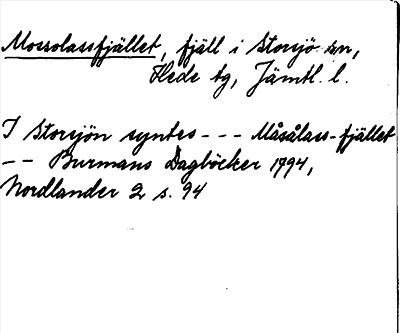 Mossolassfjället, fjäll i Storsjö sn,
Hede tg, Jämtl. l.
I Storsjön syntes --- Måsålass-fjället
-- Burmans Dagböcker 1794,
Nordlander 2 s. 94